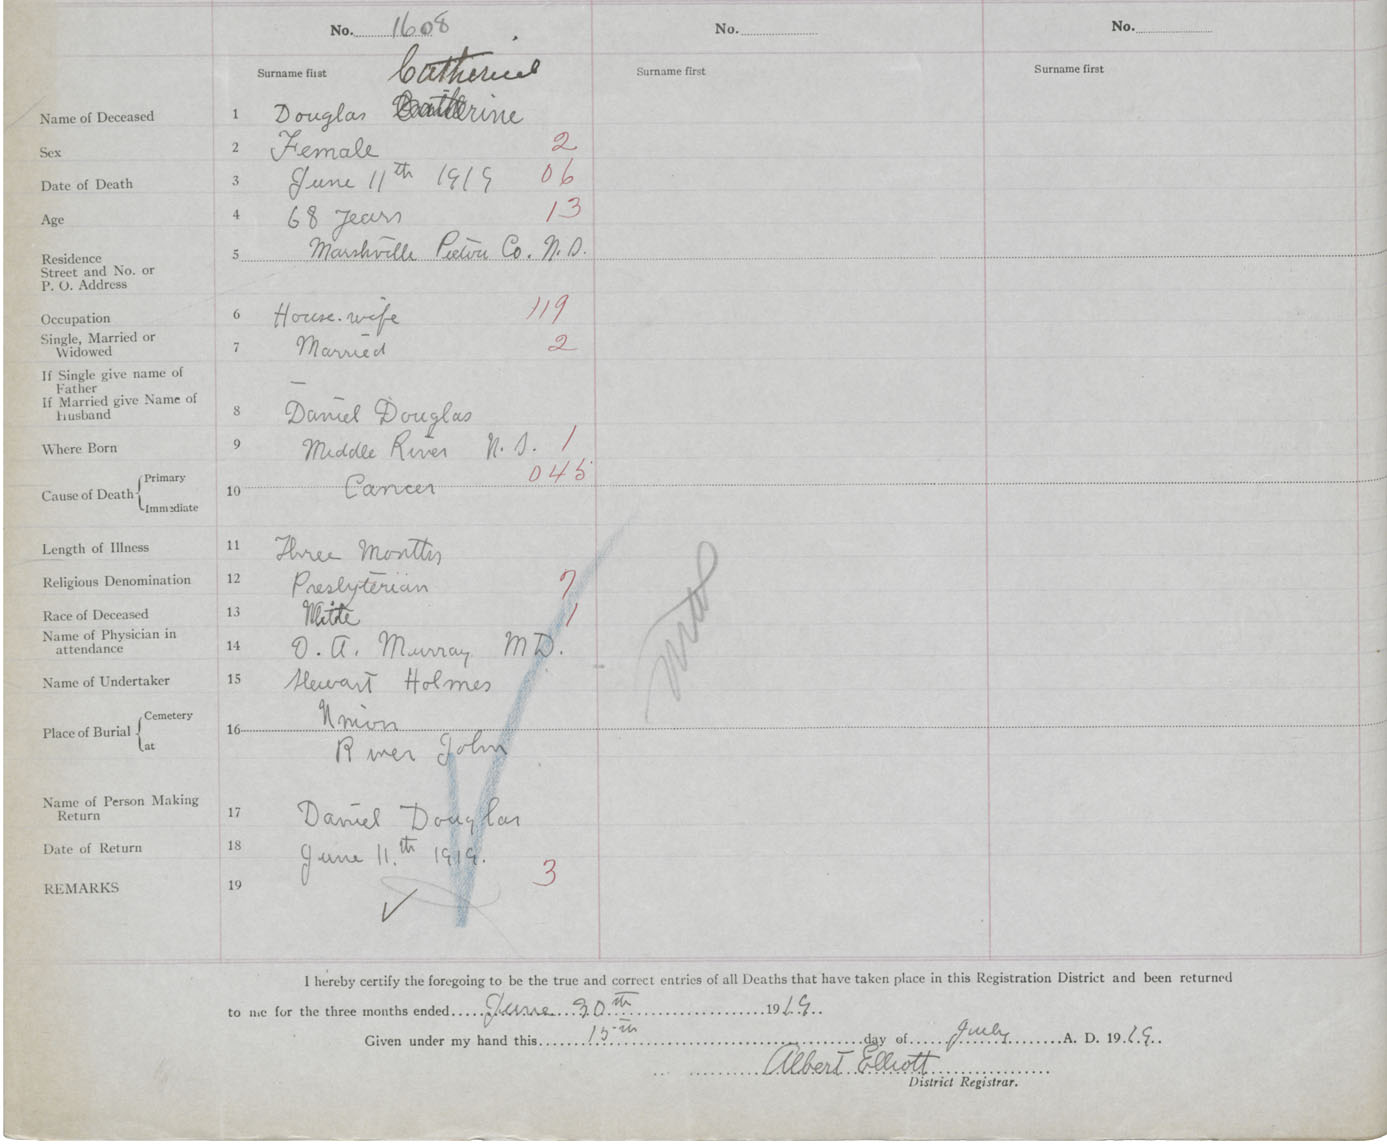 No. 1608 No. No.
Surname first Catherine Surname first Surname first
Name of Deceased 1 Douglas Catherine
Sex 2 Female 2
Date of Death 3 June 11th 1919 06
Age 4 68 Years 13
Residence 5 Marshville Pictou Co. N.S.
Street and No. or
P. O. Address
Occupation 6 House-wife 119
Single, Married or
Widowed 7 Married 2
If Single give name of
Father —
If Married give Name of
Husband 8 Daniel Douglas
Where Born 9 Middle River N.S. 1
045
Cause of Death Primary
10 Cancer
Immediate
Length of Illness 11 Three Months
Religious Denomination 12 Presbyterian 7
Race of Deceased 13 White 1
Name of Physician in
attendance 14 D. A. Murray MD.
Name of Undertaker 15 Stewart Holmes
Place of Burial Cemetery 16 Union
at River John
Name of Person Making
Return 17 Daniel Douglas
Date of Return 18 June 11.th 1919.
3
REMARKS 19
I hereby certify the foregoing to be the true and correct entries of all Deaths that have taken place in this Registration District and been returned
to me for the three months ended June 30th 1919
Given under my hand this 15th day of July A. D. 1919.
Albert Elliott
District Registrar.